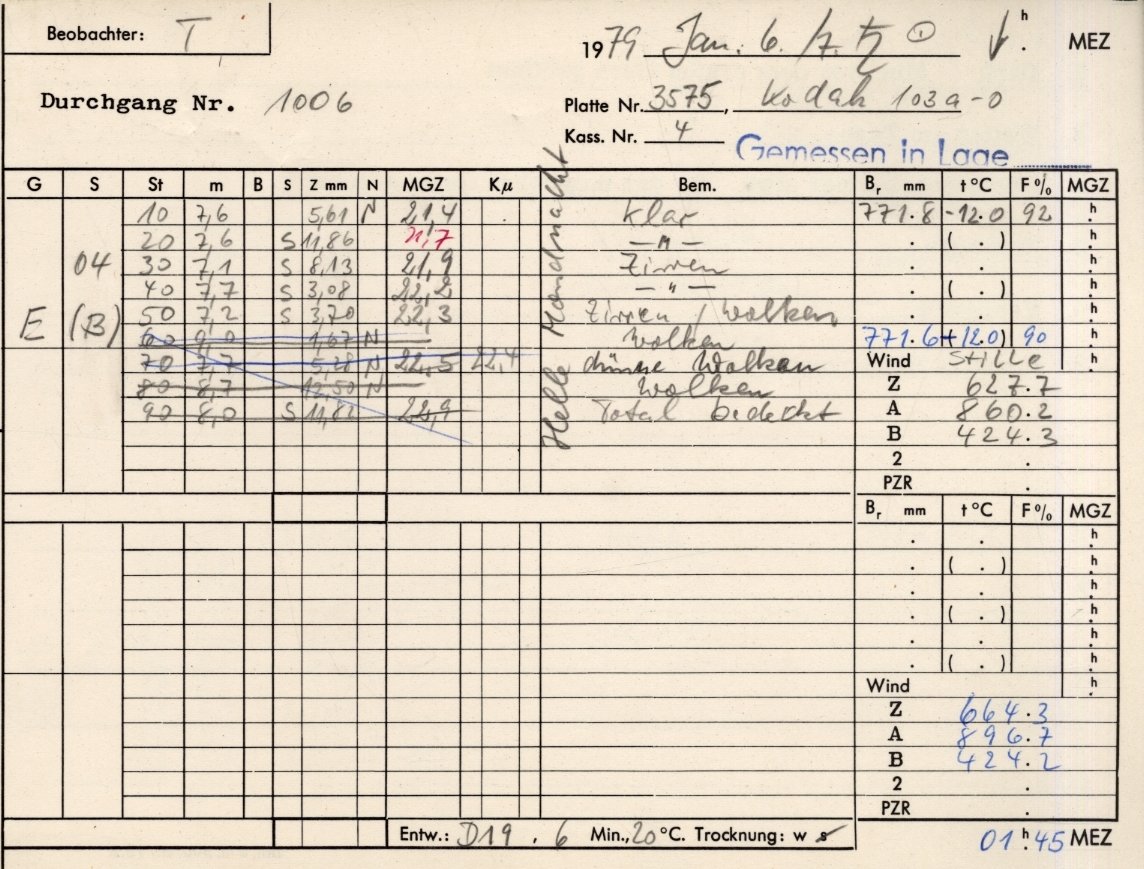 Beobachter: T
1979 Jan. 6. /7. ♄ h. MEZ
Durchgang Nr. 1006
Platte Nr. 3575, Kodak 103a-0
Kass. Nr. 4
Gemessen in Lage
G S St m B S Z mm N MGZ Kμ Bem. Br mm t°C F% MGZ
10 7,6 5,61 N 21,4 klar 771.8 -12.0 92 h
20 7,6 S 11,86 21,7 — " — . ( . )
04 30 7,1 S 8,13 21,9 Zirren . . h
40 7,7 S 3,08 22,2 — " — . ( . ) h
E (B) 50 7,2 S 3,70 22,3 Zirren / Wolken . . h
60 9,0 1,67 N Wolken 771.6 (12.0) 90 h
70 7,7 5,28 N 22,5 22,4 dünne Wolken Wind STILLE h
80 8,7 12,50 N Wolken Z 627.7
90 8,0 S 11,82 22,9 Total bedeckt A 860.2
Helle Mondnacht
B 424.3
2 .
PZR .
Br mm t°C F% MGZ
. . h
. ( . ) h
. . h
. ( . ) h
. . h
. ( . ) h
Wind h
Z 664.3
A 896.7
B 424.2
2 .
PZR .
Entw.: D19 . 6 Min., 20°C. Trocknung: w s
01h.45 MEZ